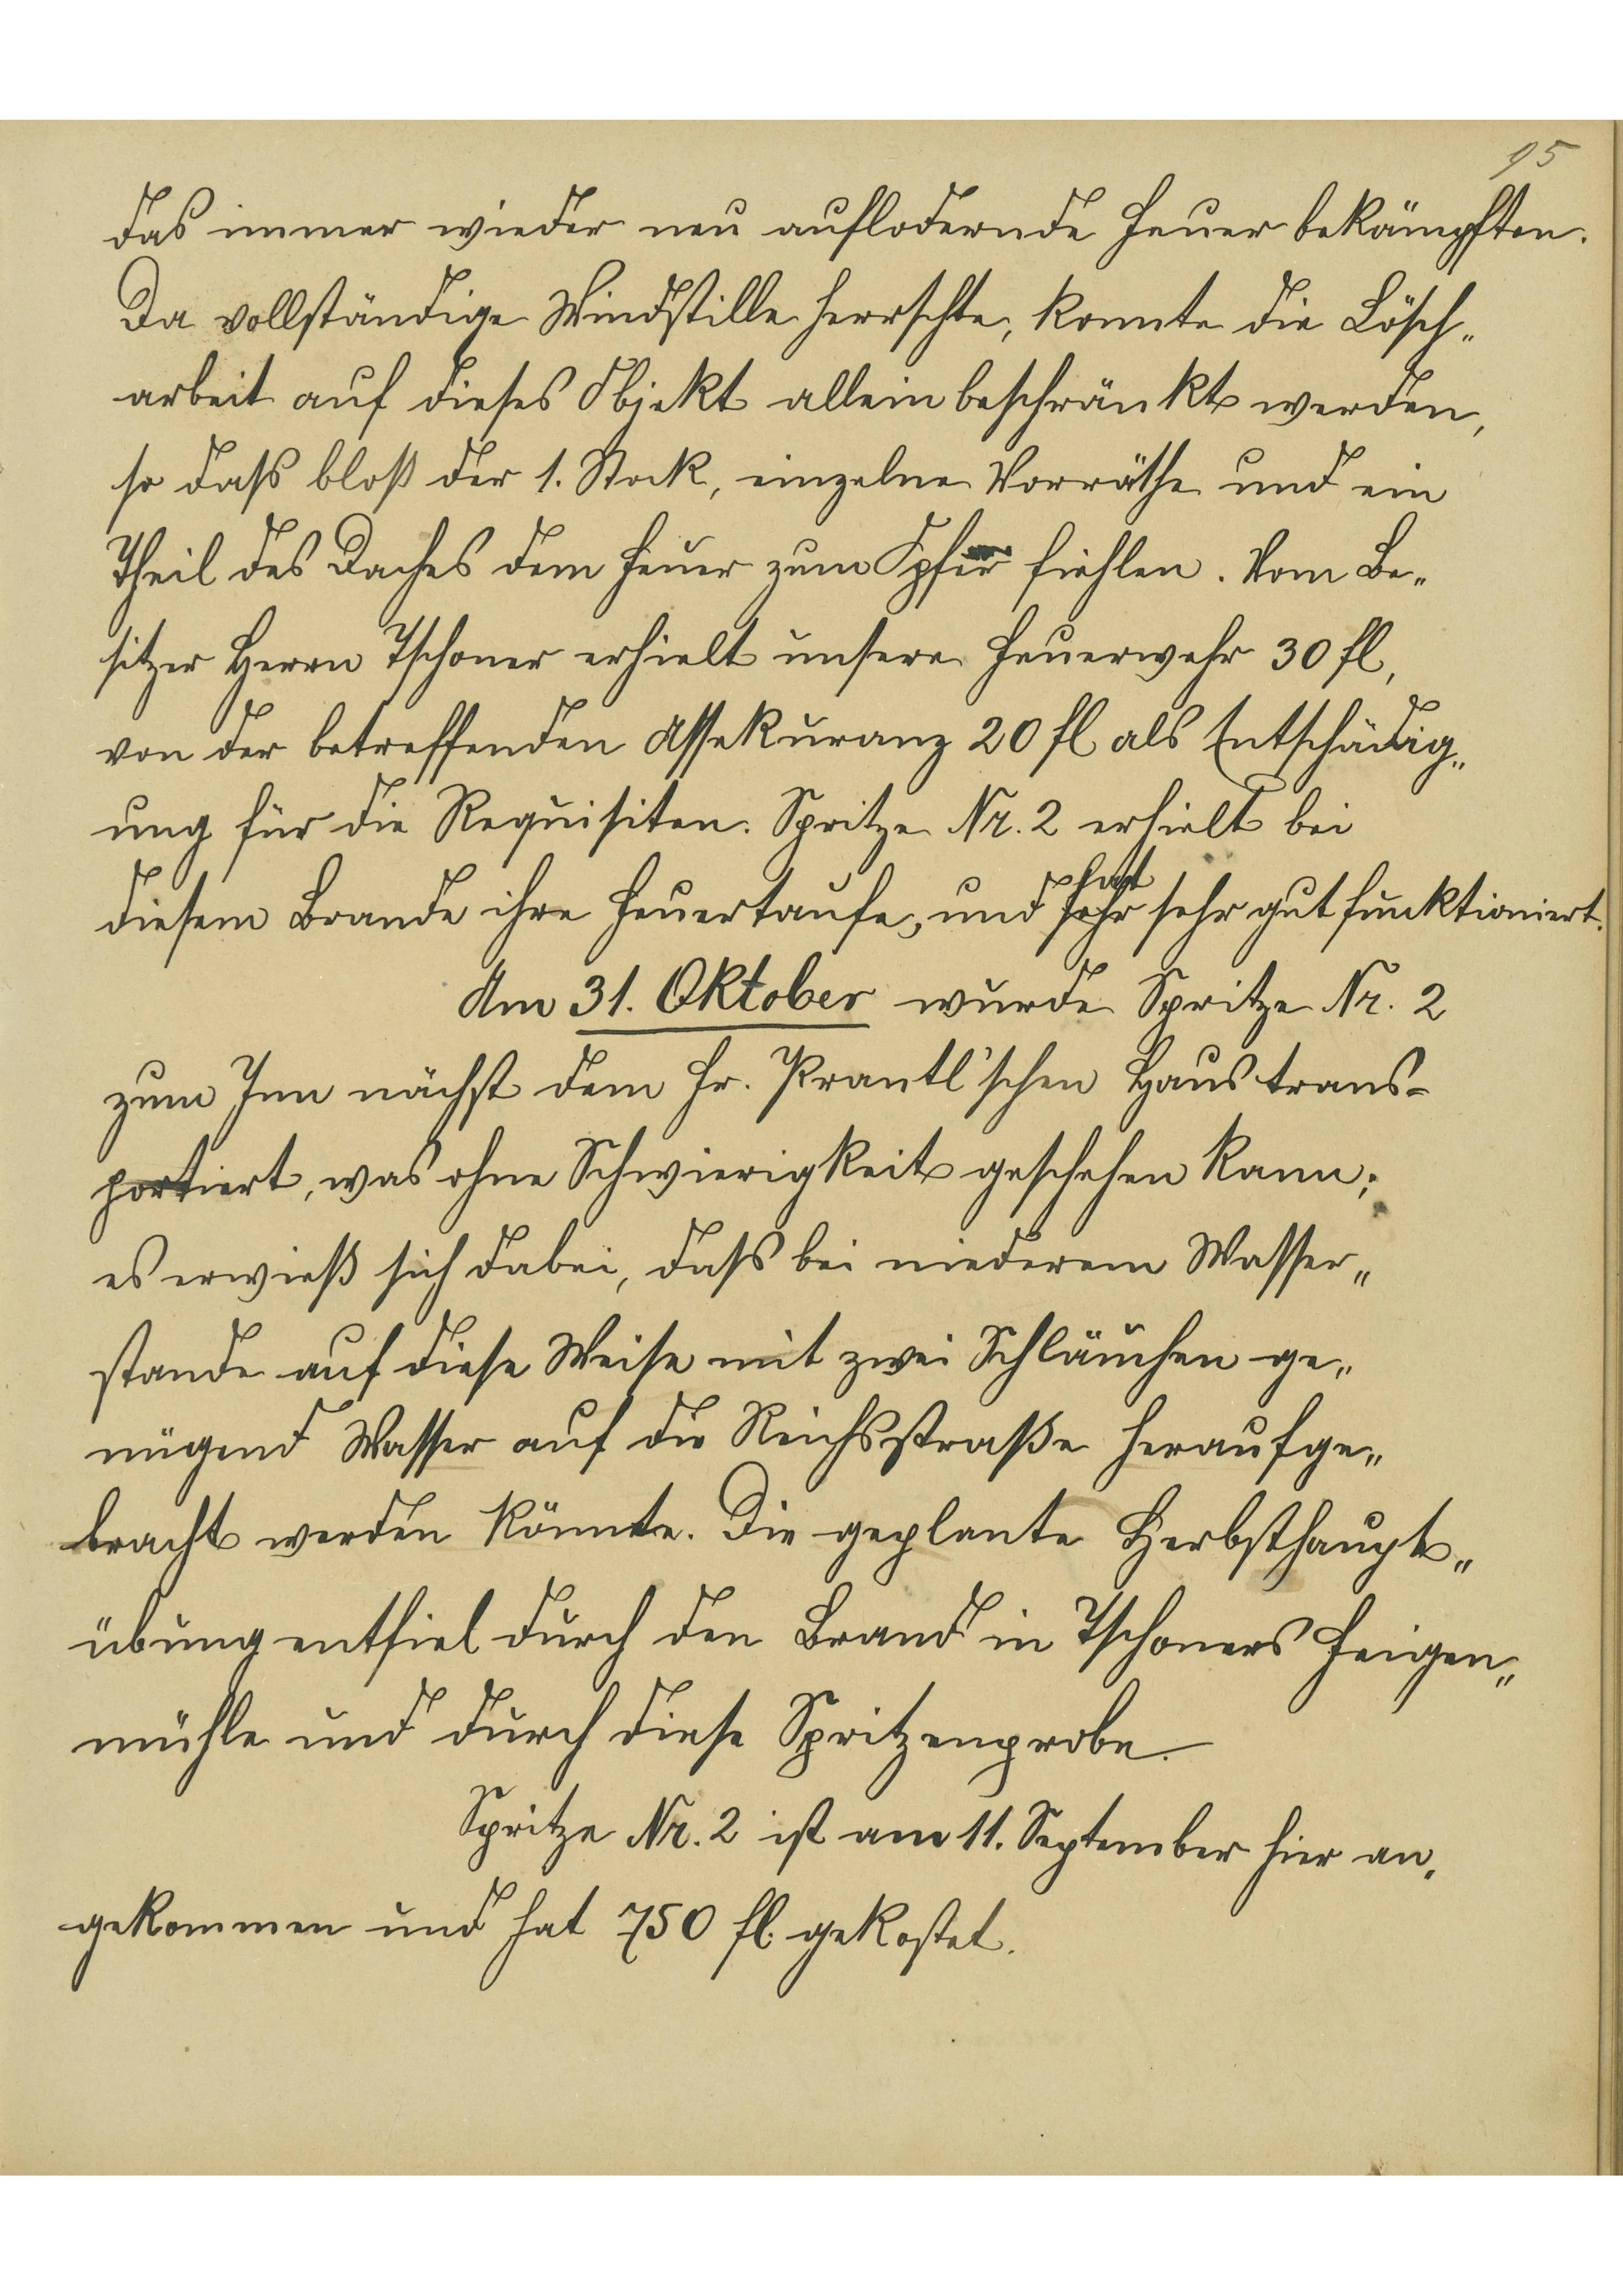 95
das immer wieder neu auflodernde Feuer bekämpften.
Da vollständige Windstille herrschte, konnte die Lösch„
arbeit auf dieses Objekt allein beschränkt werden,
so daß bloß der 1. Stock, einzelne Vorräthe und ein
Theil des Daches dem Feuer zum Opfer fiehlen. Vom Be„
sitzer Herrn Tschoner erhielt unsere Feuerwehr 30 fl,
von der betreffenden Assekuranz 20 fl als Entschädig„
ung für die Requisiten. Spritze Nr. 2 erhielt bei
hat
diesem Brande ihre Feuertaufe, und sehr sehr gut funktioniert.
Am 31. Oktober wurde Spritze Nr. 2
zum Inn nächst dem Fr. Prantl'schen Haus trans=
portiert, was ohne Schwierigkeit geschehen kann;
es erwieß sich dabei, daß bei niederem Wasser„
stande auf diese Weise mit zwei Schläuchen ge„
nügend Wasser auf die Reichsstraße heraufge„
bracht werden könnte. Die geplante Herbsthaupt„
übung entfiel durch den Brand in Tschoners Feigen„
mühle und durch diese Spritzenprobe.
Spritze Nr. 2 ist am 11. September hier an„
gekommen und hat 750 fl. gekostet.